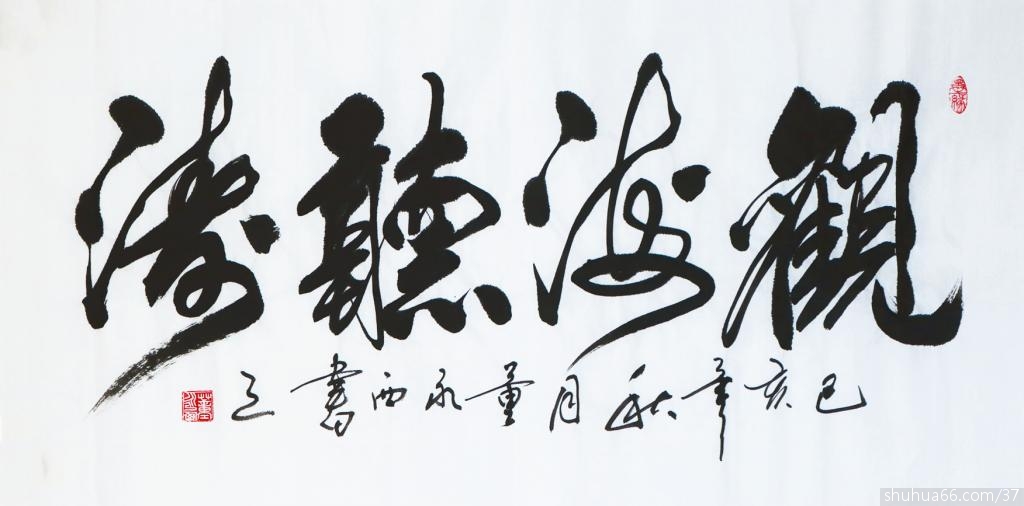 觀海聽濤
己亥年秋月董永西書之
shuhua66.com/37